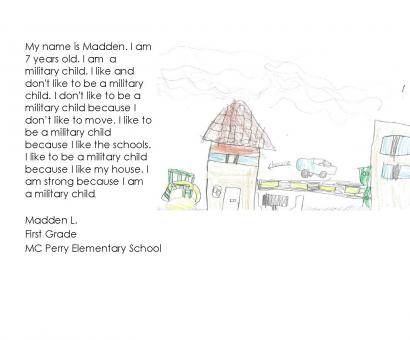 My name is Madden. I am
7 years old. I am  a
military child. I like and
don't like to be a military
child. I don't like to be a
military child because I
don't like to move. I like to
be a military child
because I like the schools.
I like to be a military child
because I like my house. I
am strong because I am
a military child
Madden L.
First Grade
MC Perry Elementary School